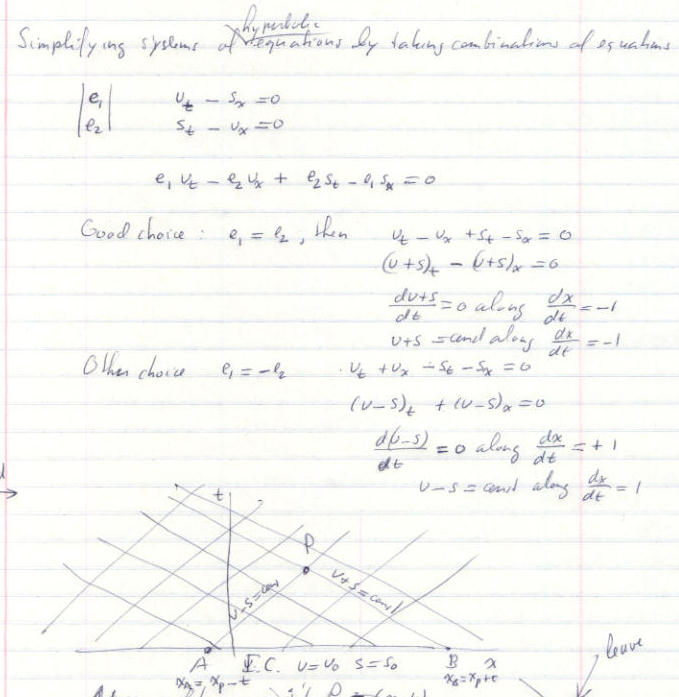 hyperbolic
Simplifying systems of equations by taking combinations of equations
|e₁| u_t - s_x = 0
|e₂| s_t - u_x = 0
e₁ u_t - e₂ u_x + e₂ s_t - e₁ s_x = 0
Good choice : e₁ = e₂ , then u_t - u_x + s_t - s_x = 0
(u+s)_t - (u+s)_x = 0
du+s/dt = 0 along dx/dt = -1
u+s = const along dx/dt = -1
Other choice e₁ = -e₂ u_t + u_x - s_t - s_x = 0
(u-s)_t + (u-s)_x = 0
d(u-s)/dt = 0 along dx/dt = +1
u-s = const along dx/dt = 1
t
P
u-s=con
u+s=const
A I.C. u=u₀ s=s₀ B x
x_A = x_p - t x_B = x_p + t
leave